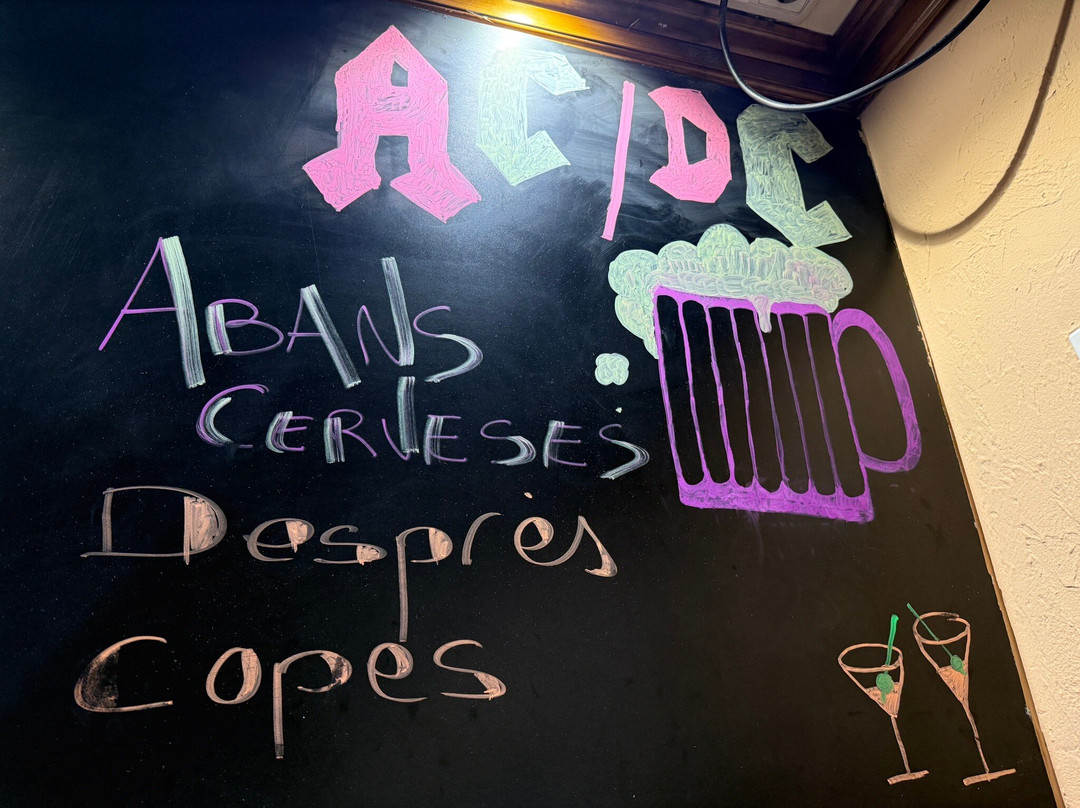 AC/DC
ABANS
CERVESES
Desprès
Copes